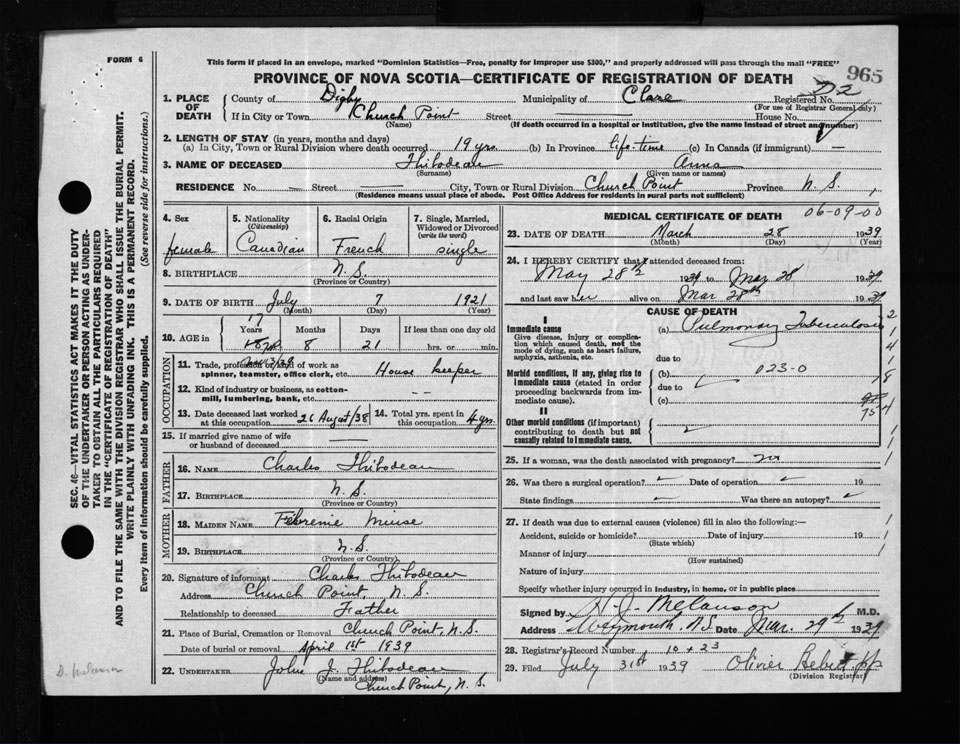 FORM 6
This form if placed in an envelope, marked "Dominion Statistics—Free, penalty for improper use $300," and properly addressed will pass through the mail "FREE"
PROVINCE OF NOVA SCOTIA—CERTIFICATE OF REGISTRATION OF DEATH
965
1. PLACE OF DEATH County of Digby Municipality of Clare Registered No. D2
(For use of Registrar General only)
If in City or Town Church Point Street — House No.
(Name) (If death occurred in a hospital or institution, give the name instead of street and number)
2. LENGTH OF STAY (in years, months and days)
(a) In City, Town or Rural Division where death occurred 19 yrs. (b) In Province life-time (c) In Canada (if immigrant) —
3. NAME OF DECEASED Thibodeau Anna
(Surname) (Given name or names)
RESIDENCE No. — Street — City, Town or Rural Division Church Point Province N. S.
(Residence means usual place of abode. Post Office Address for residents in rural parts not sufficient)
4. Sex female
5. Nationality (Citizenship) Canadian
6. Racial Origin French
7. Single, Married, Widowed or Divorced (write the word) single
8. BIRTHPLACE N. S.
(Province or Country)
9. DATE OF BIRTH July 7 1921
(Month) (Day) (Year)
10. AGE in 17 Years 8 Months 21 Days If less than one day old hrs. or min.
OCCUPATION
11. Trade, profession or kind of work as spinner, teamster, office clerk, etc. House keeper
12. Kind of industry or business, as cotton-mill, lumbering, bank, etc. — —
13. Date deceased last worked at this occupation 26 August/38
14. Total yrs. spent in this occupation 4 yrs.
15. If married give name of wife or husband of deceased —
FATHER
16. NAME Charles Thibodeau
17. BIRTHPLACE N. S.
(Province or Country)
MOTHER
18. MAIDEN NAME Febrenie Meuse
19. BIRTHPLACE N. S.
(Province or Country)
20. Signature of informant Charles Thibodeau
Address Church Point, N. S.
Relationship to deceased Father
21. Place of Burial, Cremation or Removal Church Point, N. S.
Date of burial or removal April 1st 1939
22. UNDERTAKER John J. Thibodeau
(Name and address)
Church Point, N. S.
MEDICAL CERTIFICATE OF DEATH 06-09-00
23. DATE OF DEATH March 28 1939
(Month) (Day) (Year)
24. I HEREBY CERTIFY that I attended deceased from:
May 28th 1939 to Mar 28 1939
and last saw her alive on Mar 28th 1939
CAUSE OF DEATH
I
Immediate cause
Give disease, injury or complication which caused death, not the mode of dying, such as heart failure, asphyxia, asthenia, etc.
(a) Pulmonary Tuberculosis
due to
Morbid conditions, if any, giving rise to immediate cause (stated in order proceeding backwards from immediate cause).
(b) 023-0
due to
(c)
II
Other morbid conditions (if important) contributing to death but not causally related to immediate cause.
25. If a woman, was the death associated with pregnancy? no
26. Was there a surgical operation? Date of operation 19
State findings Was there an autopsy?
27. If death was due to external causes (violence) fill in also the following:—
Accident, suicide or homicide? Date of injury 19
(State which)
Manner of injury
(How sustained)
Nature of injury
Specify whether injury occurred in industry, in home, or in public place
Signed by H. J. Melanson M.D.
Address Weymouth, N.S Date Mar. 29th 1939
28. Registrar's Record Number 10 + 23
29. Filed July 31st 1939 Olivier Bebut pp
(Division Registrar)
SEC. 46—VITAL STATISTICS ACT MAKES IT THE DUTY OF THE UNDERTAKER OR PERSON ACTING AS UNDERTAKER TO OBTAIN ALL THE PARTICULARS REQUIRED IN THE "CERTIFICATE OF REGISTRATION OF DEATH" AND TO FILE THE SAME WITH THE DIVISION REGISTRAR WHO SHALL ISSUE THE BURIAL PERMIT.
WRITE PLAINLY WITH UNFADING INK. THIS IS A PERMANENT RECORD.
Every item of information should be carefully supplied. (See reverse side for instructions.)